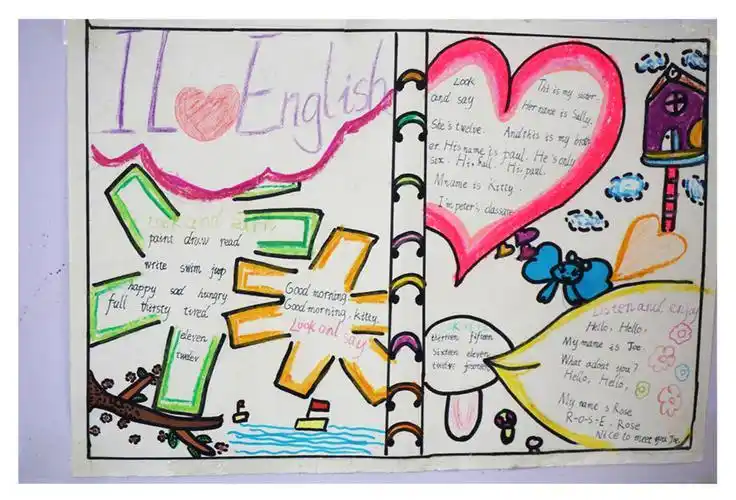 I L English
Look and learn
paint draw read
write swim jump
happy sad hungry
full thirsty tired
eleven
twelev
Good morning.
Good morning, kitty.
Look and say
Look
and say
This is my sister.
Her name is Sally.
She's twelve. And this is my broth
er. His name is paul. He's only
six. Hi, paul.
My name is Kitty.
I'm peter's classmate
thirteen fifteen
sixteen eleven
twelve fourteen
Listen and enjoy
Hello, Hello,
My name is Joe
What adout you?
Hello, Hello,
My name s Rose
R-O-S-E. Rose
Nice to meet you Joe.